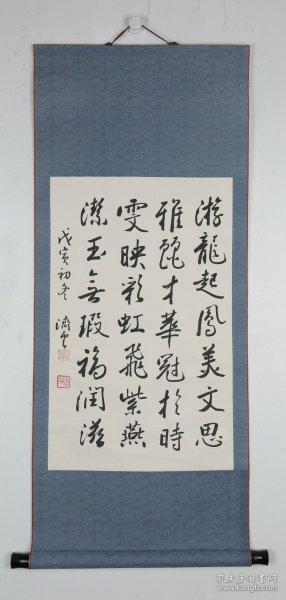 游龍起鳳美文思
雅麗才華冠於時
雯映彩虹飛紫燕
潔玉無瑕福潤滋
戊寅初冬
孔夫子旧书网